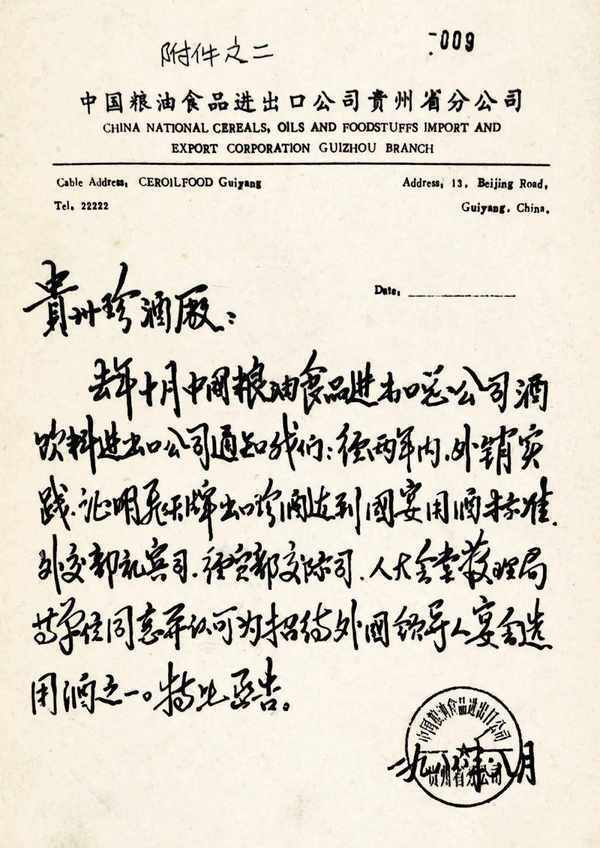 附件之二
-009
中国粮油食品进出口公司贵州省分公司
CHINA NATIONAL CEREALS, OILS AND FOODSTUFFS IMPORT AND
EXPORT CORPORATION GUIZHOU BRANCH
Cable Address: CEROILFOOD Guiyang
Address: 13, Beijing Road,
Tel. 22222
Guiyang, China.
Date:
貴州珍酒厰：
去年十月中国粮油食品进出口总公司酒
饮料进出口公司通知我们：经两年内、外销实
践、证明飞天牌出口珍酒达到國宴用酒标准.
外交部礼宾司、经贸部交际司、人大会堂管理局
等单位同意并认可为招待外國领导人宴会选
用酒之一。特此函告。
中国粮油食品进出口公司
贵州省分公司
一九八年八月